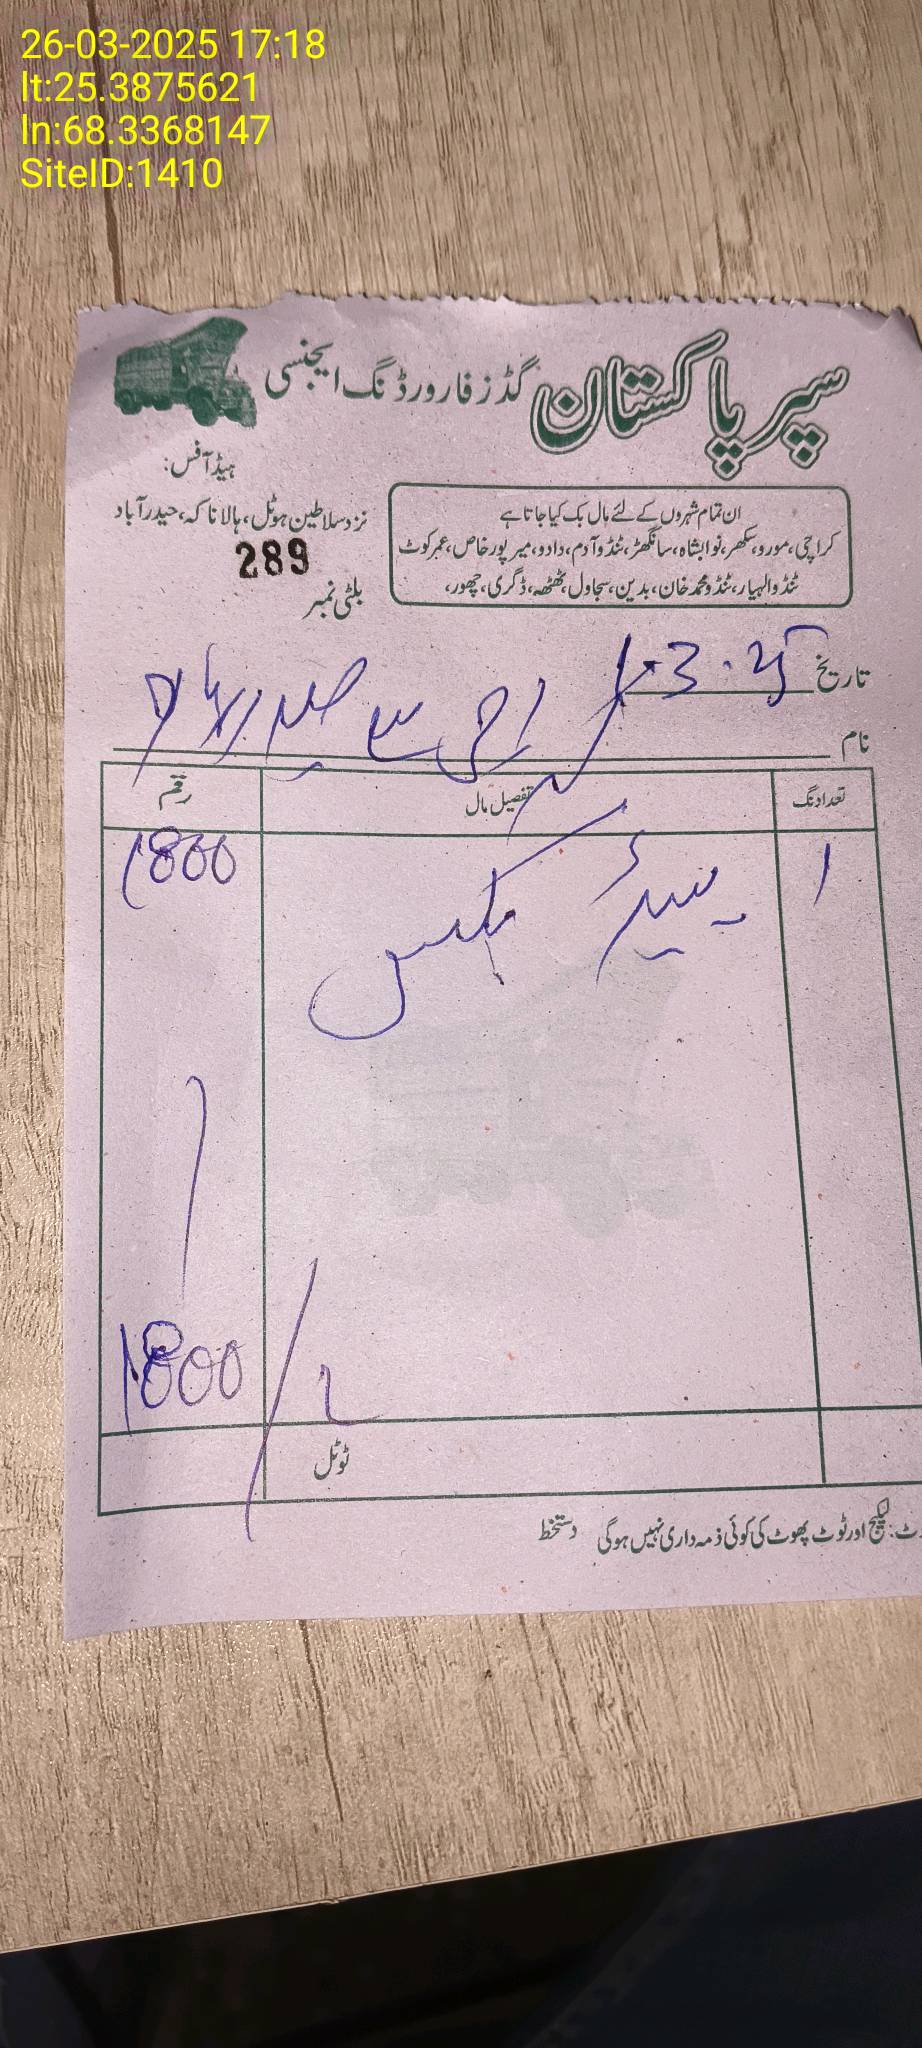 26-03-2025 17:18
lt:25.3875621
ln:68.3368147
SiteID:1410
سپر پاکستان گڈز فارورڈنگ ایجنسی
ہیڈ آفس:
نزد سلاطین ہوٹل، ہالا ناکہ، حیدرآباد
289
بلٹی نمبر
ان تمام شہروں کے لئے مال بک کیا جاتا ہے
کراچی، مورو، سکھر، نوابشاہ، سانگھڑ، ٹنڈو آدم، دادو، میرپور خاص، عمرکوٹ
ٹنڈو الہیار، ٹنڈو محمد خان، بدین، سجاول، ٹھٹھہ، ڈگری، چھور،
تاریخ 3.25
نام کراچی سے حیدرآباد
تعداد نگ تفصیل مال رقم
1 مکس 1800
1800
ٹوٹل
ٹ: لیکیج اور ٹوٹ پھوٹ کی کوئی ذمہ داری نہیں ہوگی دستخط